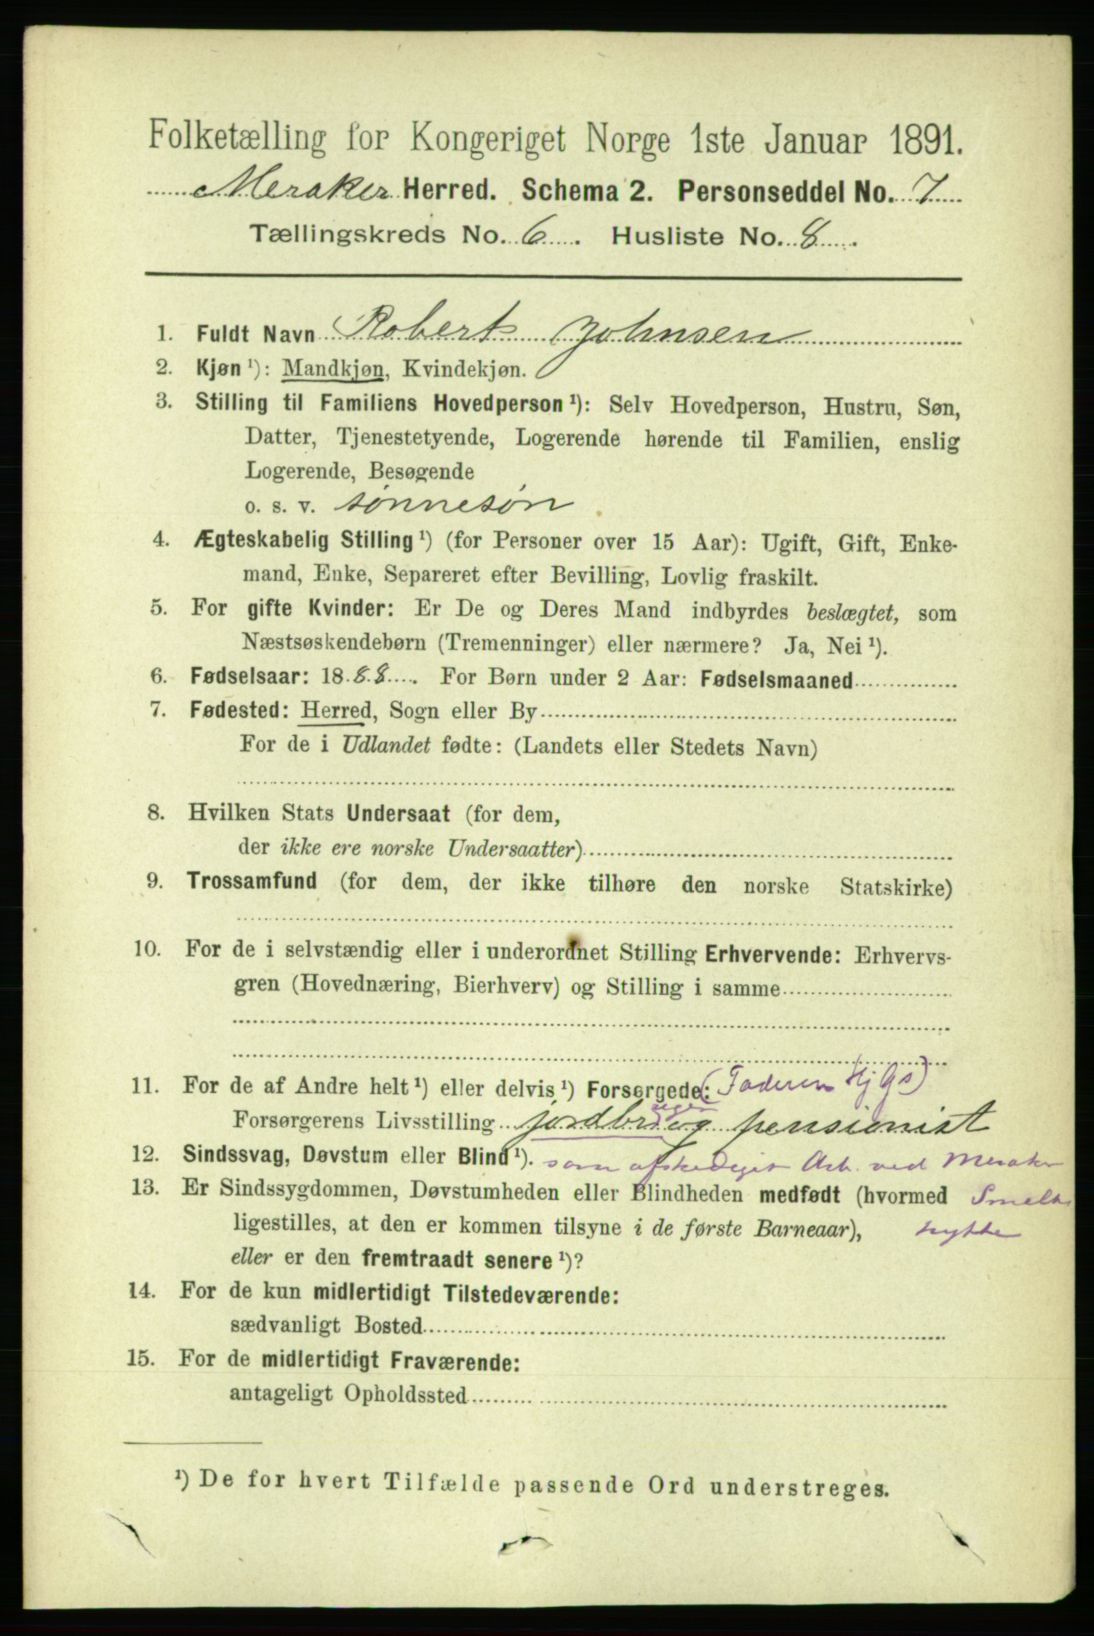 Folketælling for Kongeriget Norge 1ste Januar 1891.
Meraker Herred. Schema 2. Personseddel No. 7
Tællingskreds No. 6. Husliste No. 8.
1. Fuldt Navn Robert Johnsen
2. Kjøn ¹): Mandkjøn, Kvindekjøn.
3. Stilling til Familiens Hovedperson ¹): Selv Hovedperson, Hustru, Søn,
Datter, Tjenestetyende, Logerende hørende til Familien, enslig
Logerende, Besøgende
o. s. v. sønnesøn
4. Ægteskabelig Stilling ¹) (for Personer over 15 Aar): Ugift, Gift, Enke-
mand, Enke, Separeret efter Bevilling, Lovlig fraskilt.
5. For gifte Kvinder: Er De og Deres Mand indbyrdes beslægtet, som
Næstsøskendebørn (Tremenninger) eller nærmere? Ja, Nei ¹).
6. Fødselsaar: 1888. For Børn under 2 Aar: Fødselsmaaned
7. Fødested: Herred, Sogn eller By
For de i Udlandet fødte: (Landets eller Stedets Navn)
8. Hvilken Stats Undersaat (for dem,
der ikke ere norske Undersaatter)
9. Trossamfund (for dem, der ikke tilhøre den norske Statskirke)
10. For de i selvstændig eller i underordnet Stilling Erhvervende: Erhvervs-
gren (Hovednæring, Bierhverv) og Stilling i samme
11. For de af Andre helt ¹) eller delvis ¹) Forsørgede: (Faderen
Forsørgerens Livsstilling jordbr og pensionist
12. Sindssvag, Døvstum eller Blind ¹). som afskediget Arb. ved Meraker
13. Er Sindssygdommen, Døvstumheden eller Blindheden medfødt (hvormed Smelte
ligestilles, at den er kommen tilsyne i de første Barneaar), hytte
eller er den fremtraadt senere ¹)?
14. For de kun midlertidigt Tilstedeværende:
sædvanligt Bosted
15. For de midlertidigt Fraværende:
antageligt Opholdssted
¹) De for hvert Tilfælde passende Ord understreges.